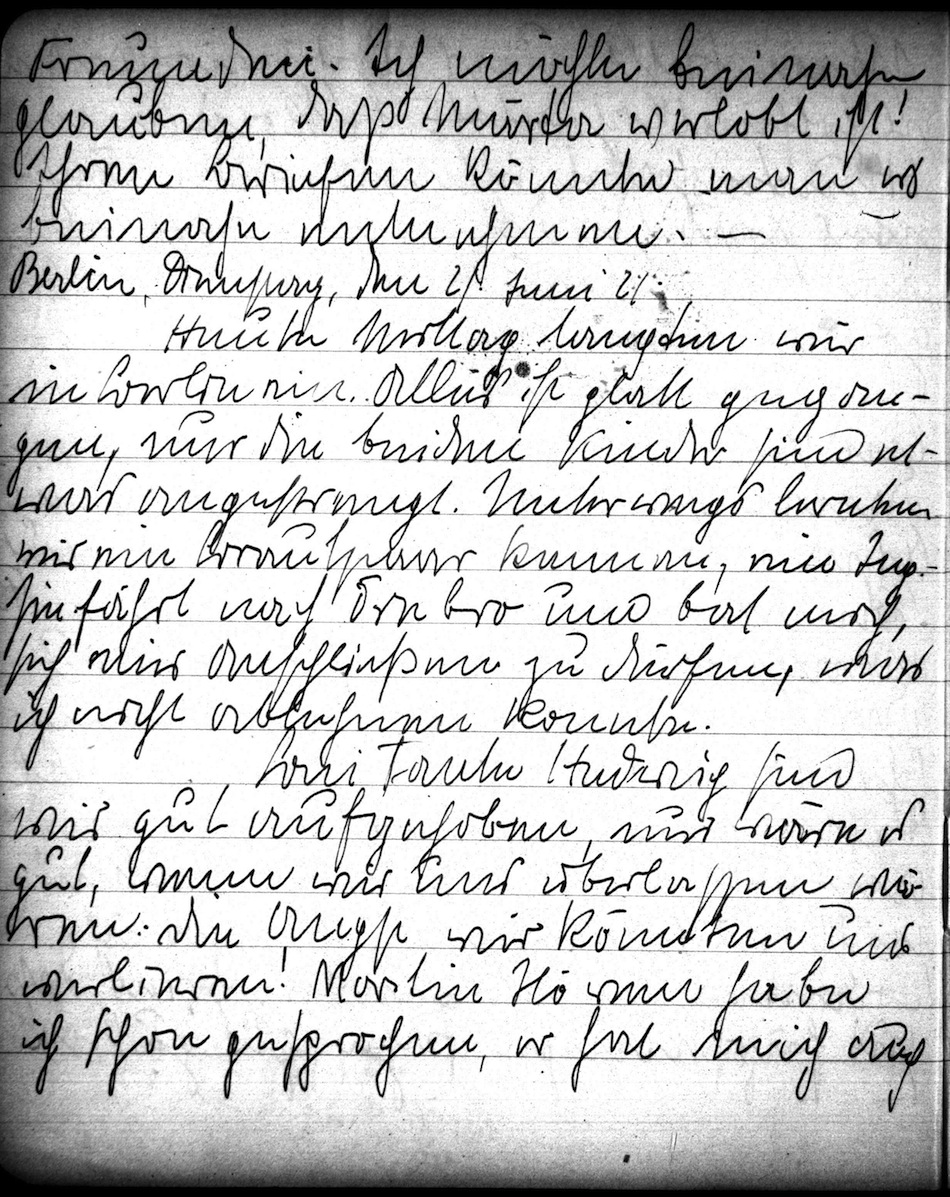 Freundei. Ich möchte beinahe
glauben, daß Märta verlobt ist!
Ihren Briefen könnte man es
beinahe entnehmen. —
Berlin, Dienstag, den 21. Juni 21.
Heute Mittag langten wir
in Berlin ein. Alles ist glatt gegan-
gen, nur die beiden Kinder sind et-
was angestrengt. Unterwegs lernten
wir ein Brautpaar kennen, eine
sie fährt nach Örebro und bat mich,
sich mir anschließen zu dürfen, was
ich nicht ablehnen konnte.
Bei Tante Hedwig sind
wir gut aufgehoben, nur wäre es
gut, wenn wir uns überlassen wä-
ren: die Angst wir könnten uns
verlieren! Martin habe
ich schon gesprochen, er hat mich auf